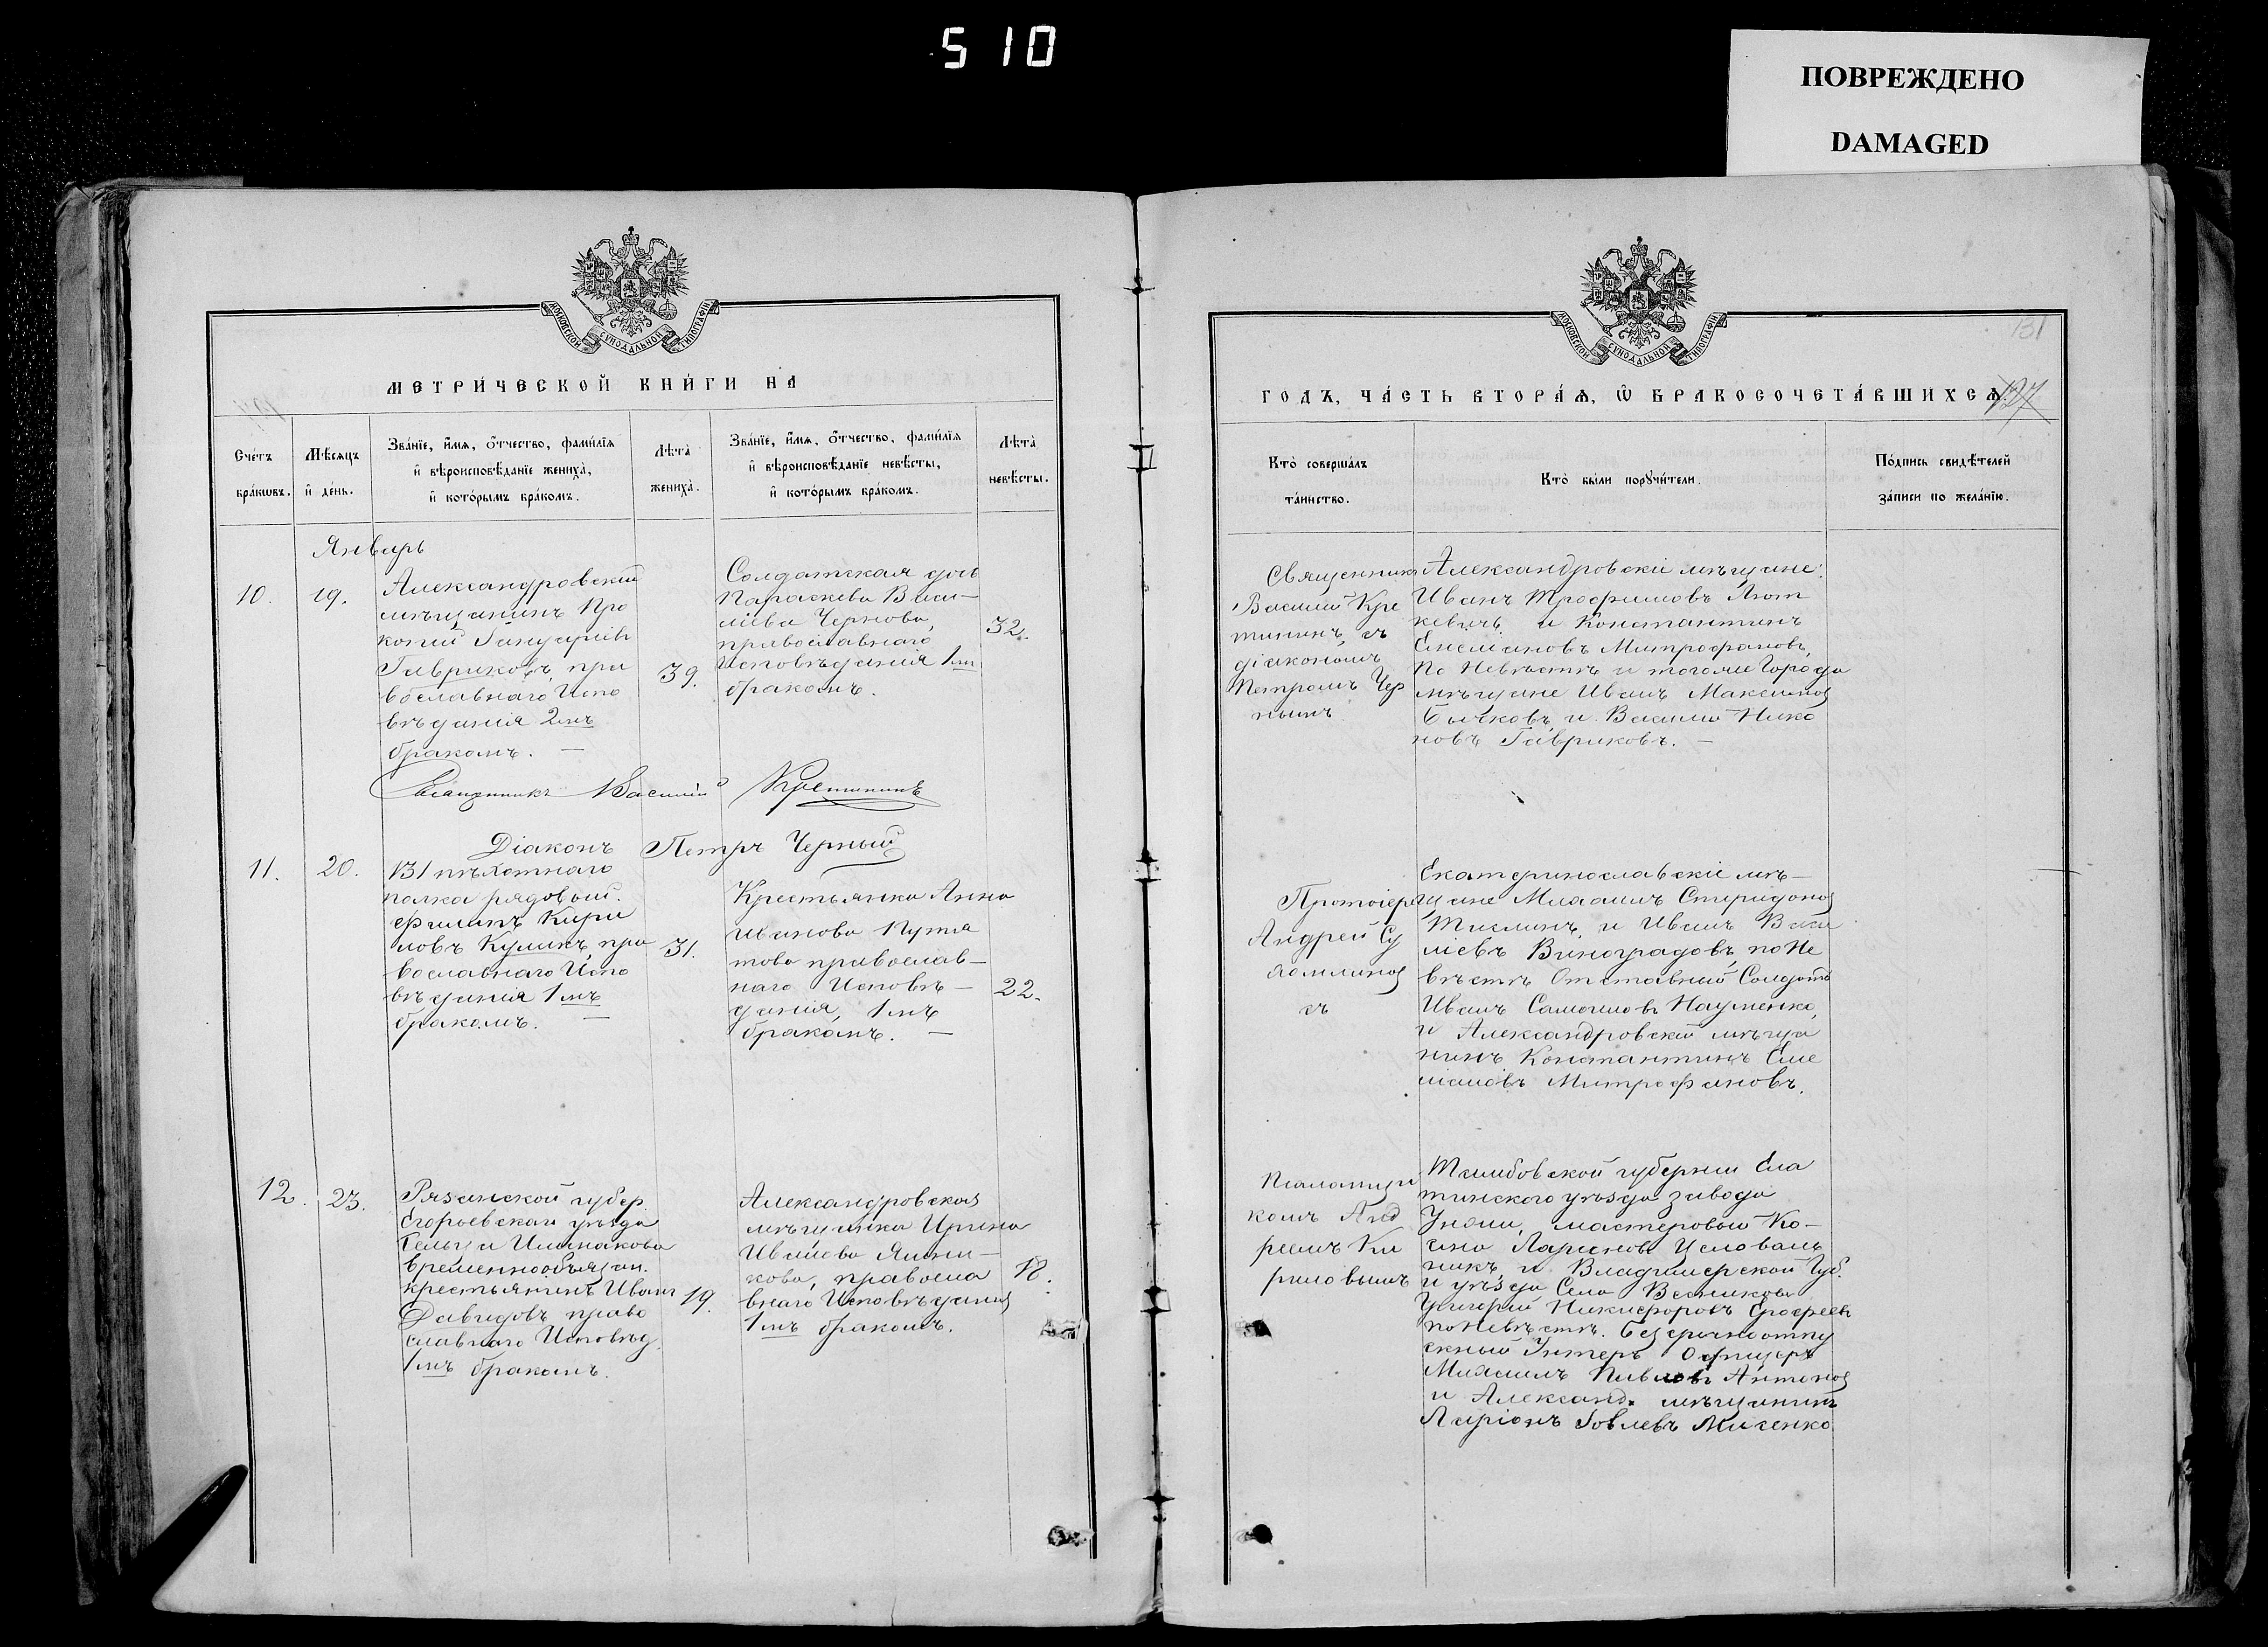 510
ПОВРЕЖДЕНО
DAMAGED
МОСКОВСКОЙ СѴНОДАЛЬНОЙ ТИПОГРАФІИ
МЕТРИ́ЧЕСКОЙ КНИ́ГИ НА
Сче́тъ бра́ковъ.
Мѣ́сяцъ и҆ де́нь.
Зва́нїе, и҆́мѧ, ѻ҆́тчество, фами́лїѧ
и҆ вѣроисповѣ́данїе жениха̀,
и҆ кото́рымъ бра́комъ.
Лѣта̀ жениха̀.
Зва́нїе, и҆́мѧ, ѻ҆́тчество, фами́лїѧ
и҆ вѣроисповѣ́данїе невѣ́сты,
и҆ кото́рымъ бра́комъ.
Лѣта̀ невѣ́сты.
Январь
10.
19.
Александровскій
мѣщанинъ Про
копій Іануаріев
Гавриковъ, пра
вославнаго Испо
вѣданія 2мъ
бракомъ. —
39.
Солдатская дочь
Параскева Васи—
ліева Чернова,
православнаго
Исповѣданія 1мъ
бракомъ.
32.
Священникъ Василій Кретининъ
Діаконъ Петръ Черный
11.
20.
131 пѣхотнаго
полка рядовый.
Филипъ Кири
ловъ Куликъ, пра
вославнаго Испо
вѣданія 1мъ
бракомъ. —
31.
Крестьянка Анна
Иванова
православ—
наго Исповѣ—
данія, 1мъ
бракомъ. —
22.
12.
23.
Рязанской губер.
Егорьевскаго уѣзда
временнообязан.
крестьянинъ Иванъ
Давидовъ право
славнаго Исповѣд.
1мъ бракомъ.
19.
Александровская
мѣщанка Ирина
Иванова
кова, правосла
внаго Исповѣданія
1мъ бракомъ.
18.
МОСКОВСКОЙ СѴНОДАЛЬНОЙ ТИПОГРАФІИ
131
ГОДЪ, ЧА́СТЬ ВТОРА́Ѧ, Ѡ҆ БРАКОСОЧЕТА́ВШИХСѦ.
127
Кто̀ соверша́лъ
та́инство.
Кто̀ бы́ли порꙋчи́тели.
По́дпись свидѣ́телей
за́писи по жела́нїю.
Священникъ
Василій Кре
тининъ, съ
діакономъ
Петромъ Чер
нымъ
Александровскіе мѣщане:
Иванъ Трофимовъ Лют
кевичъ и Константинъ
Емеліановъ Митрофановъ,
по Невѣстѣ и тогоже Города
мѣщане Иванъ Максимов
Бычковъ и Василій Нико
новъ Гавриковъ. —
Протоіерей
Андрей Су
съ
Екатеринославскіе мѣ—
щане Михаилъ Спиридонов
и Иванъ Васи
ліевъ Виноградовъ, по Не
вѣстѣ Отставный Солдатъ
Иванъ Самоиловъ Науменко,
и Александровскій мѣща
нинъ Константинъ Еме
ліановъ Митрофановъ.
Псаломщи
комъ Анд
реемъ Ки
риловымъ
Тамбовской губерніи Ела
тинского уѣзда завода
Унжи, мастеровый Ко—
сма Ларіоновъ
и Владимерской Губ.
и уѣзда Села
Григорій Никифоровъ Ерофеевъ
по Невѣстѣ. Безсрочноотпу
скный Унтеръ Офицеръ
Михаилъ Павловъ Антонов
и Александ. мѣщанинъ
Ларіонъ Іовлевъ